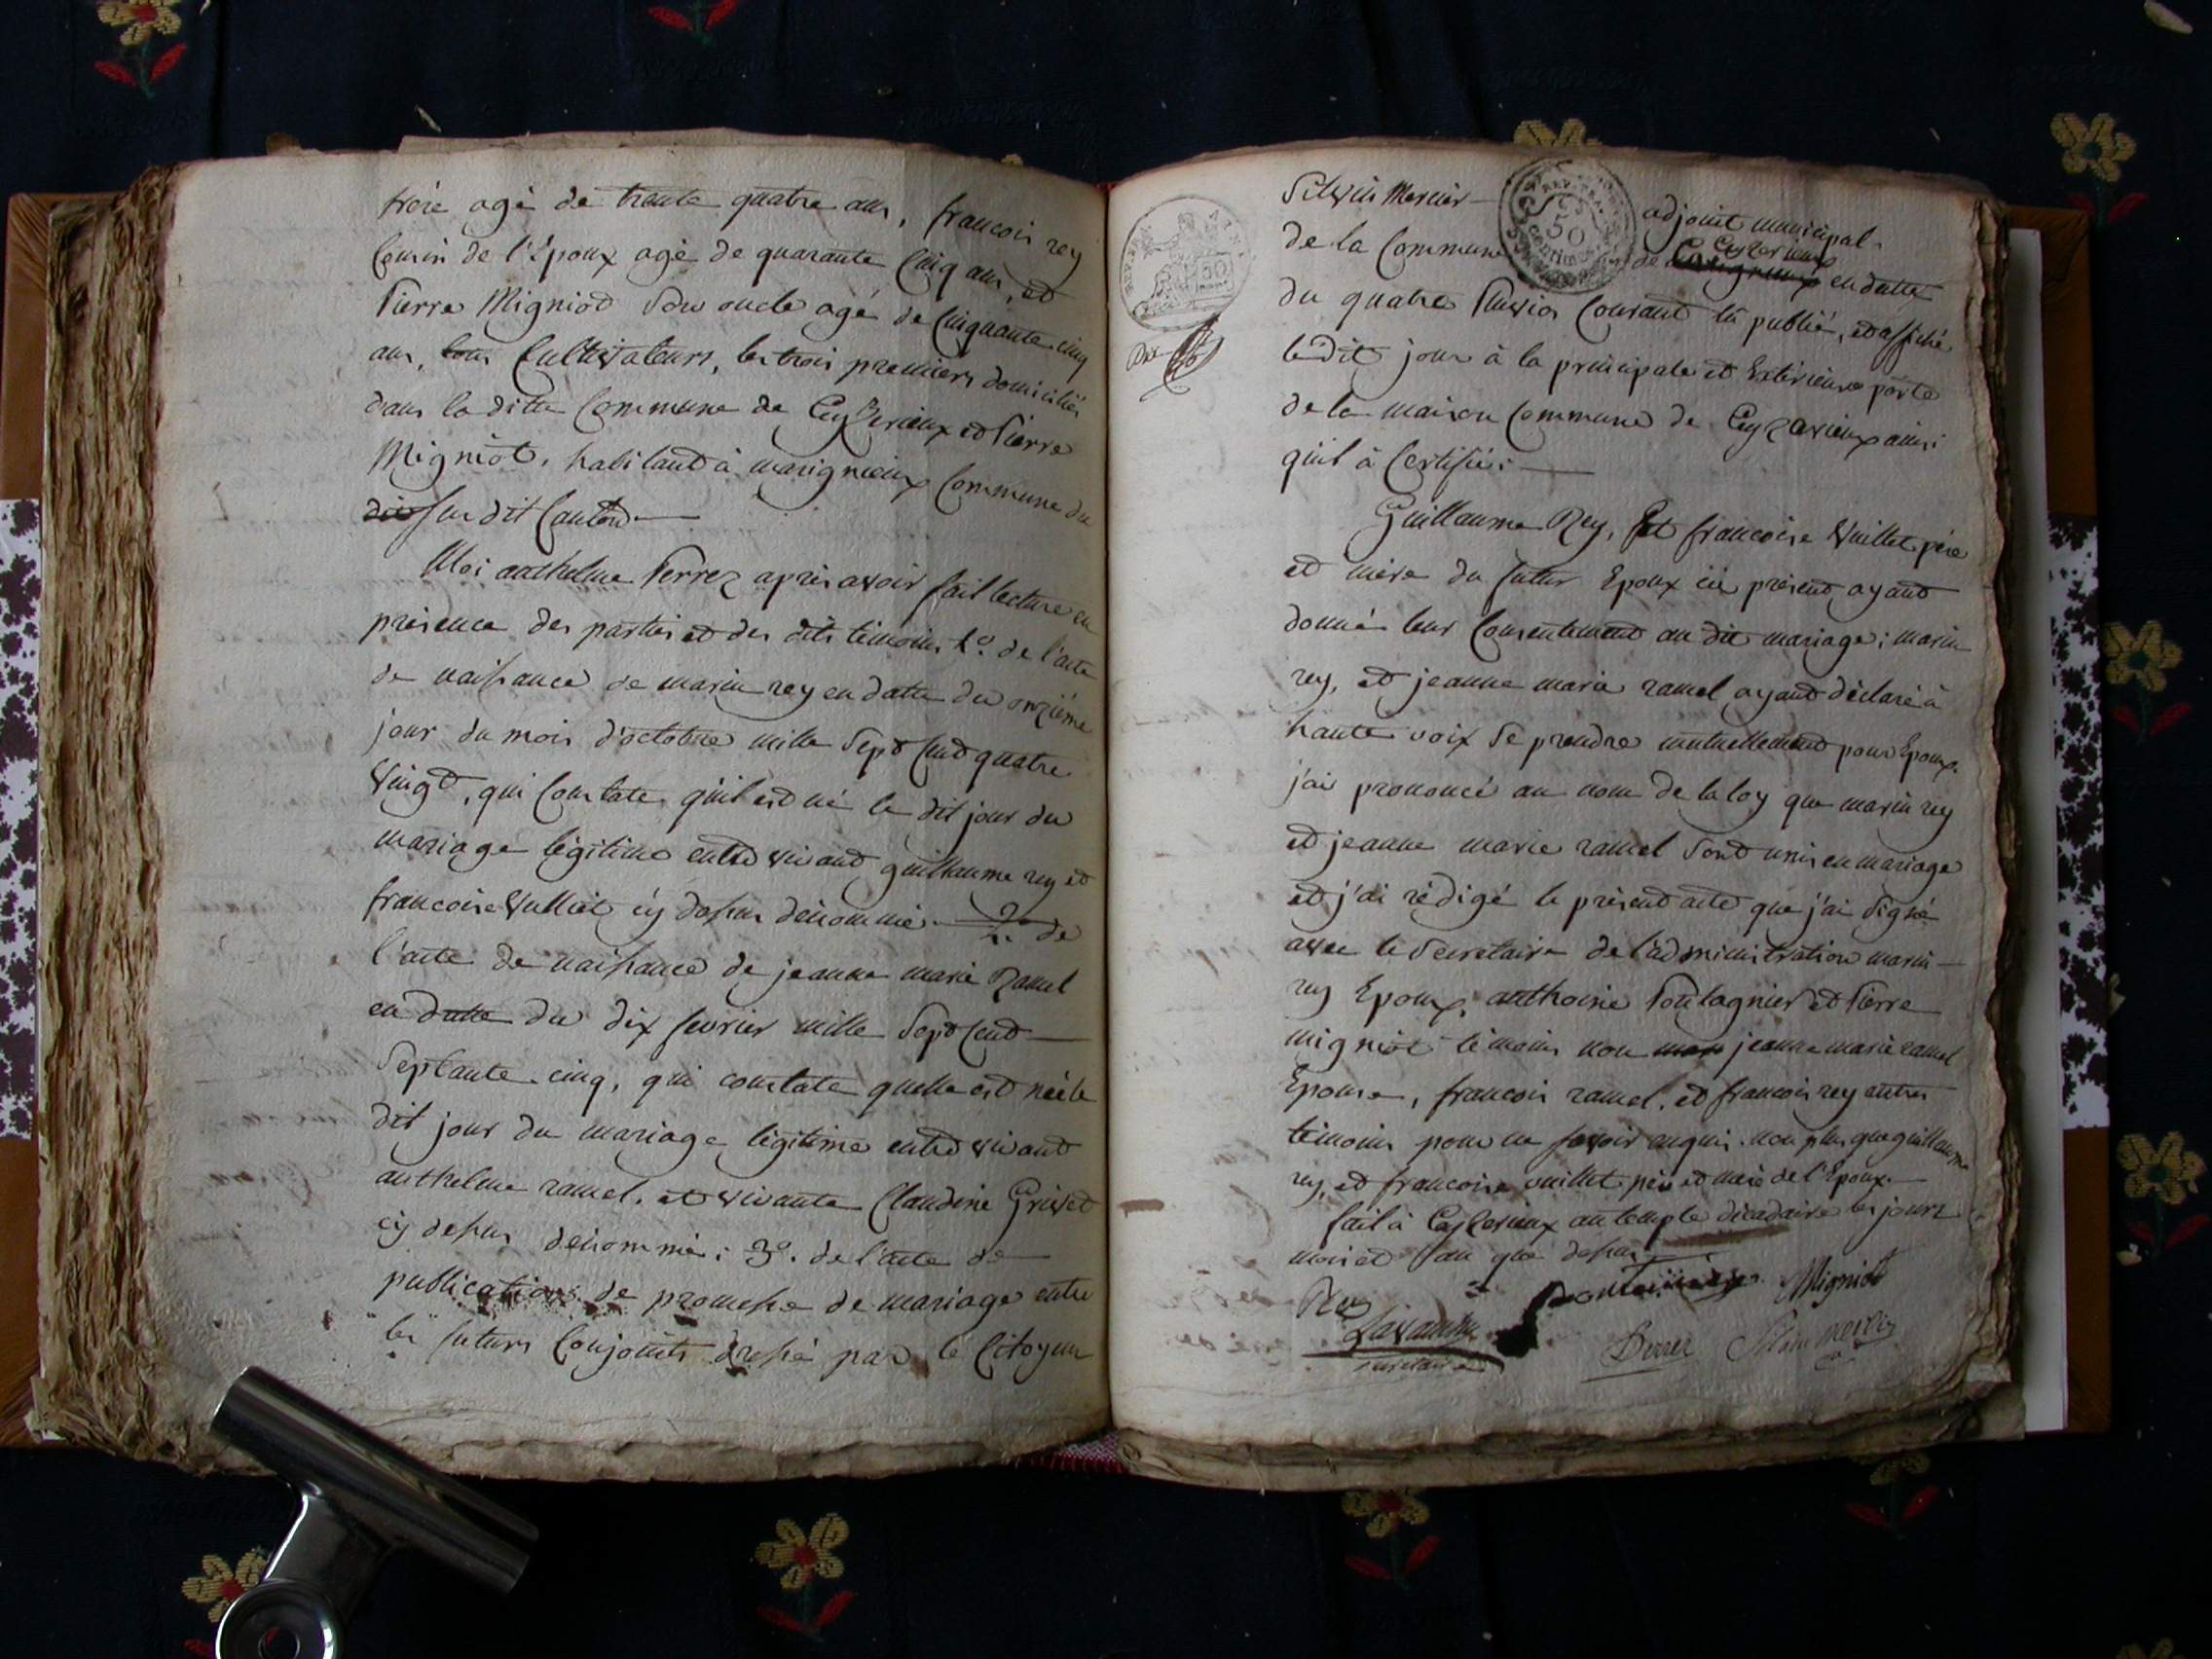 frère agé de trente quatre ans, francois rey
Cousin de l'Epoux agé de quarante Cinq ans, et
Pierre Migniod Son oncle agé de Cinquante cinq
ans, tous Cultivateurs, les trois premiers domiciliés
dans la ditte Commune de Ceyzerieux et Pierre
Migniot, habitant à marignieux Commune du
sus dit Canton
Moi anthelme Perrez après avoir fait lecture en
presence des parties et des dits temoins 1o. de l'acte
de naissance de marin rey en datte du onzième
jour du mois d'octobre mille Sept Cent quatre
Vingt, qui Constate qu'il est né le dit jour du
mariage légitime entre vivant guillaume rey et
francoise Vulliet cy dessus dénommé. 2. de
l'acte de naissance de jeanne marie Ramel
en datte du dix fevrier mille Sept Cent
Septante cinq, qui constate quelle est née le
dit jour du mariage légitime entre vivant
anthelme ramel, et vivante Claudine Grivet
cy dessus dénommé; 3o. de l'acte de
publications de promesse de mariage entre
les futurs Conjoints dressé par le Citoyen
Silvin Mercier adjoint municipal
de la Commune de Ceyzerieux en datte
du quatre Pluvios Courant lû publié, et affiché
le dit jour à la principale et Extérieure porte
de la maison Commune de Ceyzerieux ainsi
qu'il à Certifié;
Guillaume Rey, Et francoise Vuillet père
et mère du futur Epoux ici présent ayant
donné leur Consentement au dit mariage; marin
rey, et jeanne marie ramel ayant déclaré à
haute voix Se prendre mutuellement pour Epoux.
j'ai prononcé au nom de la loy que marin rey
et jeanne marie ramel Sont unis en mariage
et j'ai rédigé le présent acte que j'ai Signé
avec le Secretaire de l'administration marin
rey Epoux, anthoine Pontagnier et Pierre
migniot témoins non jeanne marie ramel
Epouse, francois ramel, et francois rey autres
témoins pour ne savoir enquis. non plus que guillaume
rey, et francoise vuillet père et mère de l'Epoux.
fait à Ceyzerieux au temple décadaire les jours
mois et an que dessus
Rey Migniot
secretaire Perrez
REP. FRA.
50
centimes
50